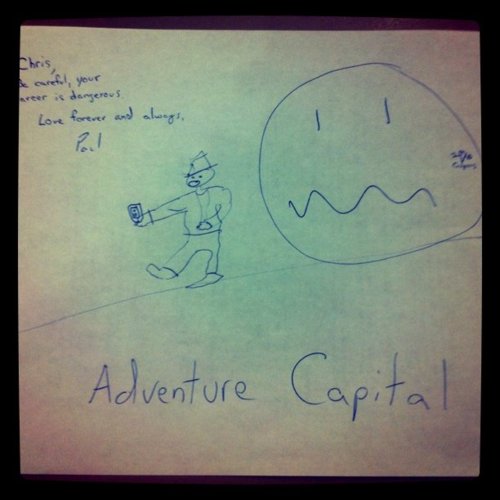 Chris,
Be careful, your
career is dangerous.
Love forever and always,
Paul
Adventure Capital